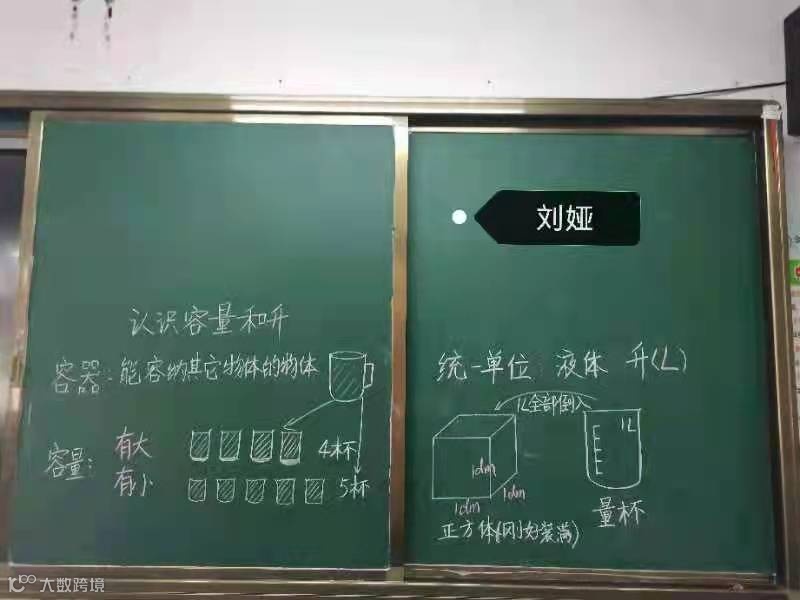 刘娅
认识容量和升
容器：能容纳其它物体的物体
容量：
有大
有小
4杯
5杯
统一单位 液体 升(L)
1L全部倒入
1L
1dm
1dm
1dm
正方体(刚好装满)
量杯
大数跨境